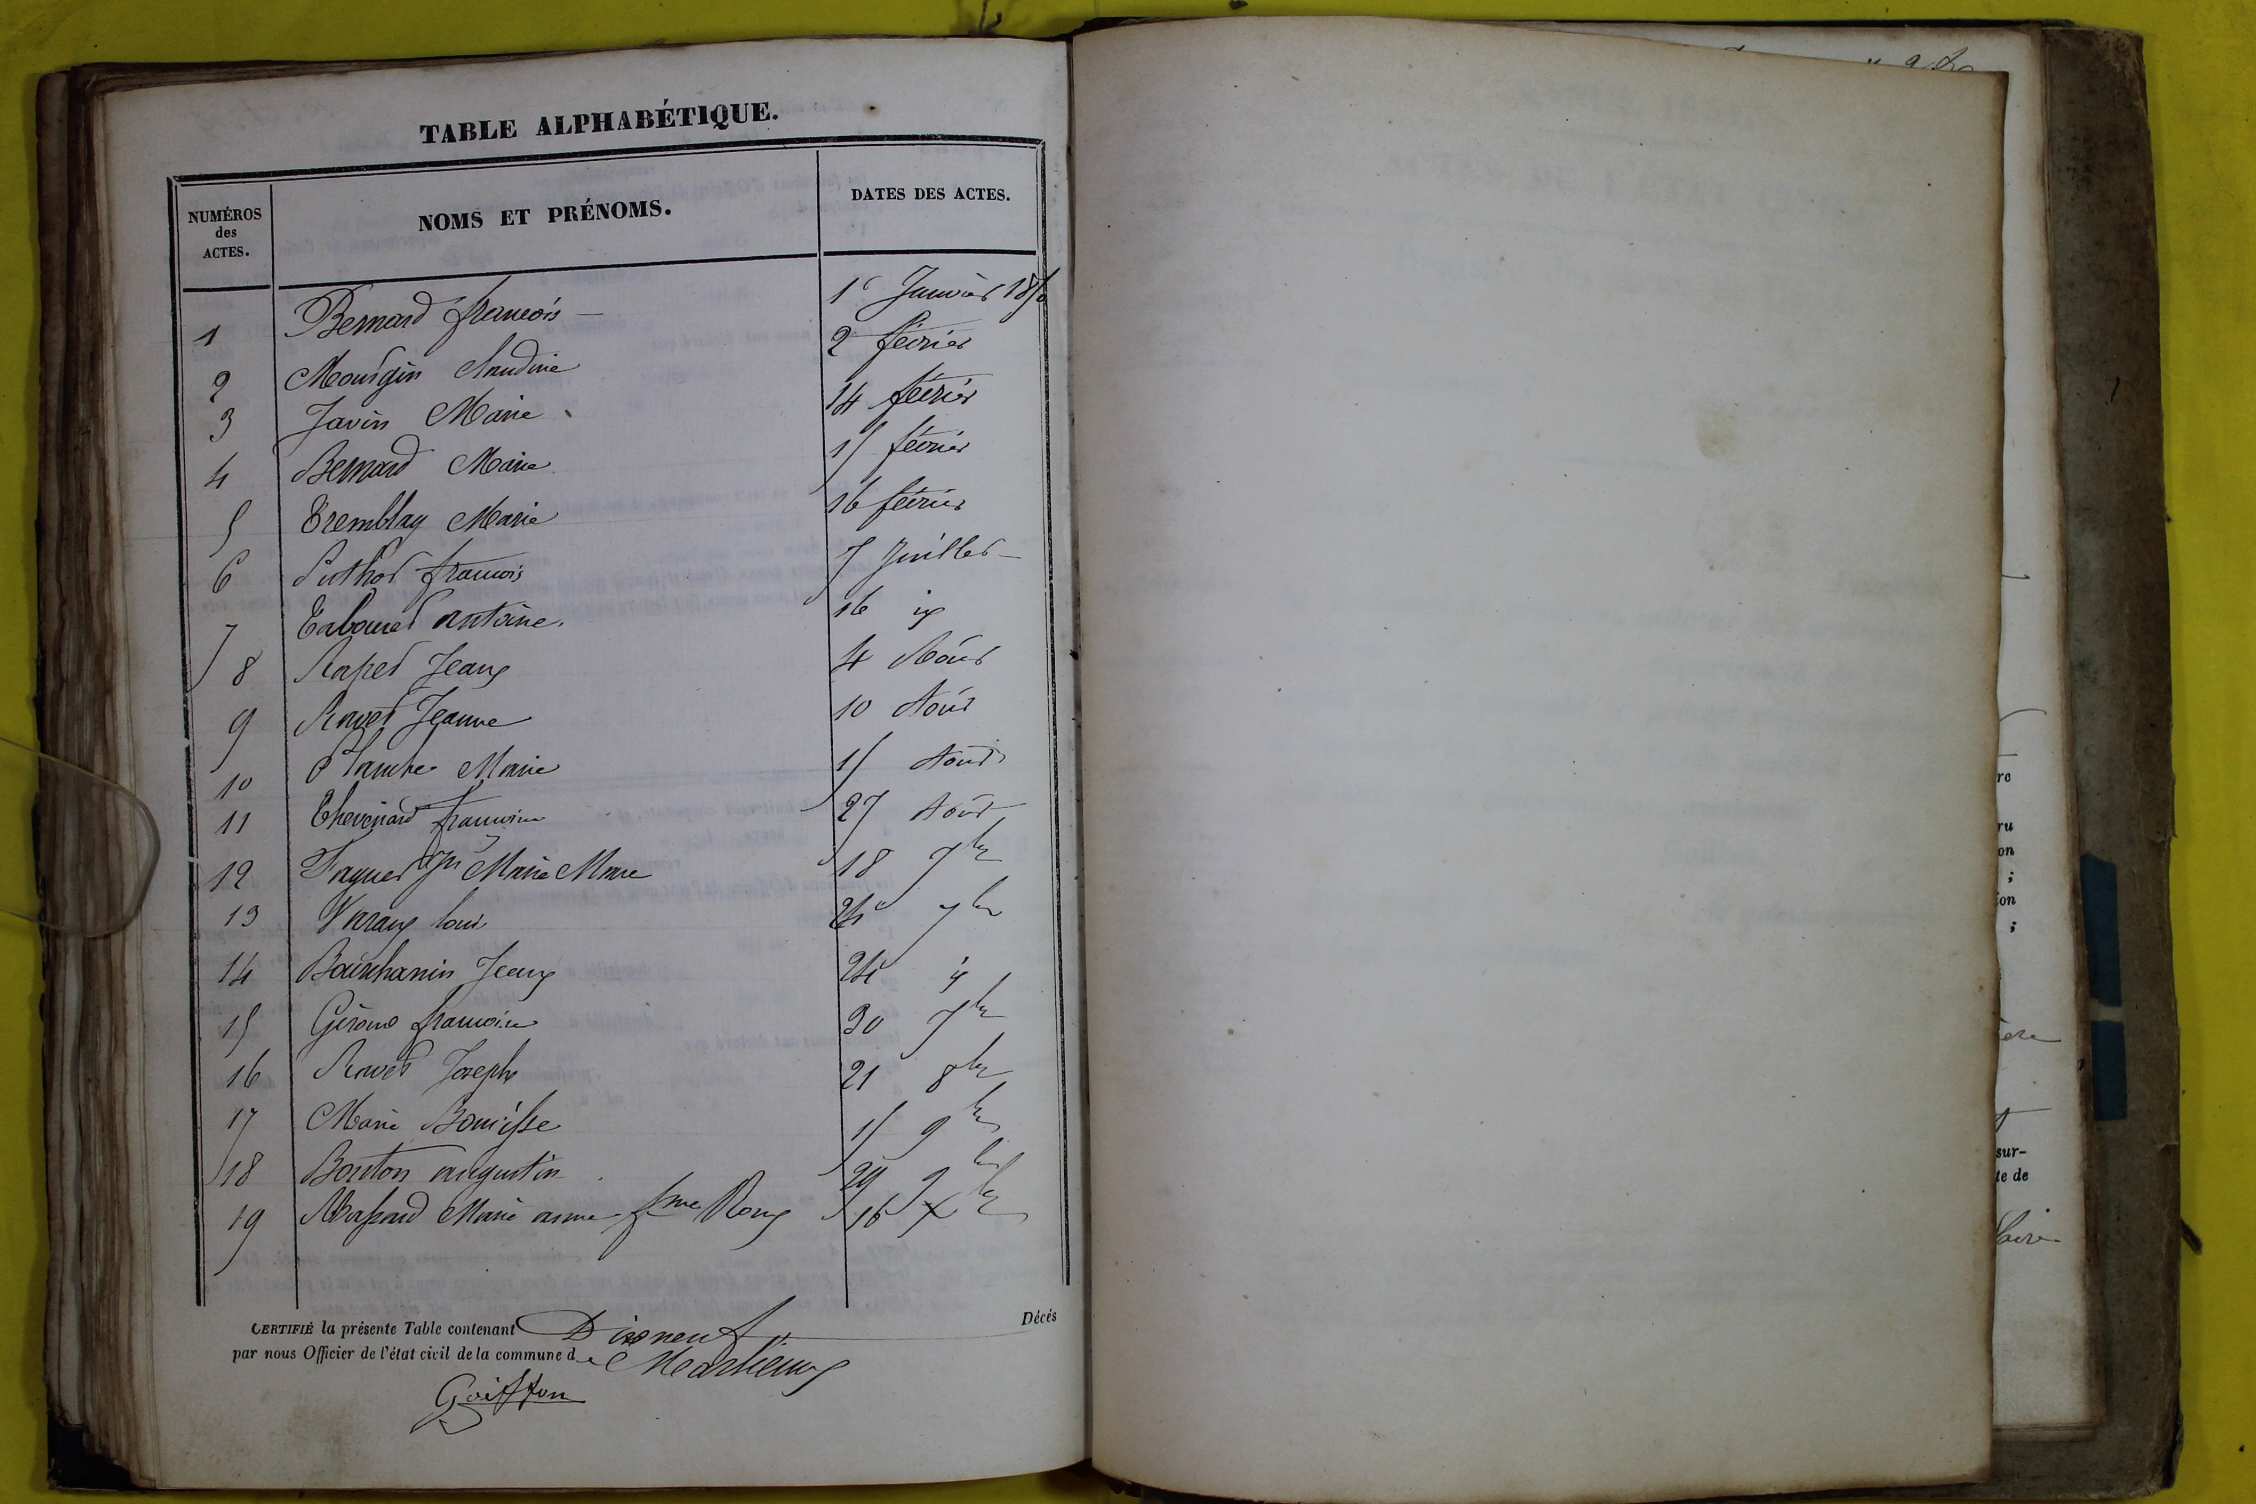 TABLE ALPHABÉTIQUE.
NUMÉROS des ACTES. NOMS ET PRÉNOMS. DATES DES ACTES.
1 Bernard françois 1er Janvier 18
2 Claudine 2 février
3 Javin Marie 14 février
4 Bernard Marie 15 février
5 Tremblay Marie 16 février
6 Puthod françois 5 Juillet
7 Tabouret antoine. 16
8 Rapet Jean 4 Août
9 Ravet Jeanne 10 Août
10 Plantre Marie 15 Août
11 Thevenard françoise 27 Août
12 Marie 18 7bre
13 Louis 24 7bre
14 Bourchanin Jean 24
15 Gérome françoise 30 7bre
16 Ravet Joseph 21 8bre
17 Marie 15 9bre
18 Bouton augustin 29 9bre
19 Marie anne fme Roux 16 Xbre
CERTIFIÉ la présente Table contenant Dix neuf Décés
par nous Officier de l'état civil de la commune de
Goiffon
rc
ru
on
;
ion
;
sur-
te de